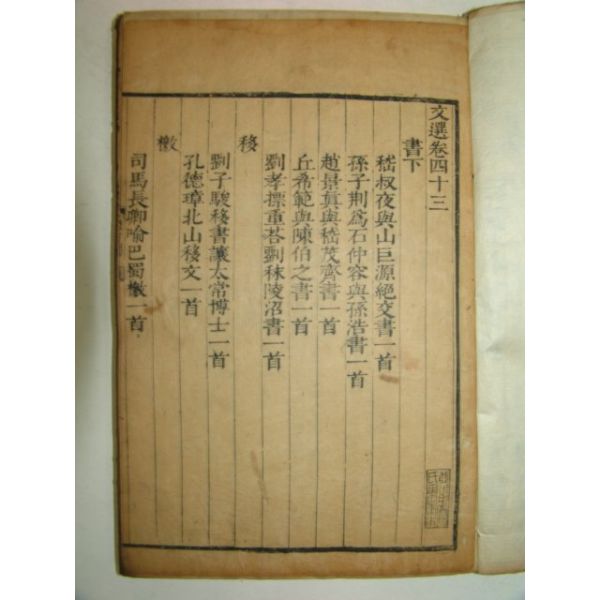 文選卷四十三
書下
嵇叔夜與山巨源絕交書一首
孫子荆爲石仲容與孫浩書一首
趙景眞與嵇茂齊書一首
丘希範與陳伯之書一首
劉孝摽重荅劉秣陵沼書一首
移
劉子駿移書讓太常博士一首
孔德璋北山移文一首
檄
司馬長卿喻巴蜀檄一首